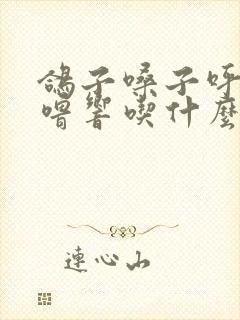 鴿子嗓子呼
嚕響喫什麼
連心山